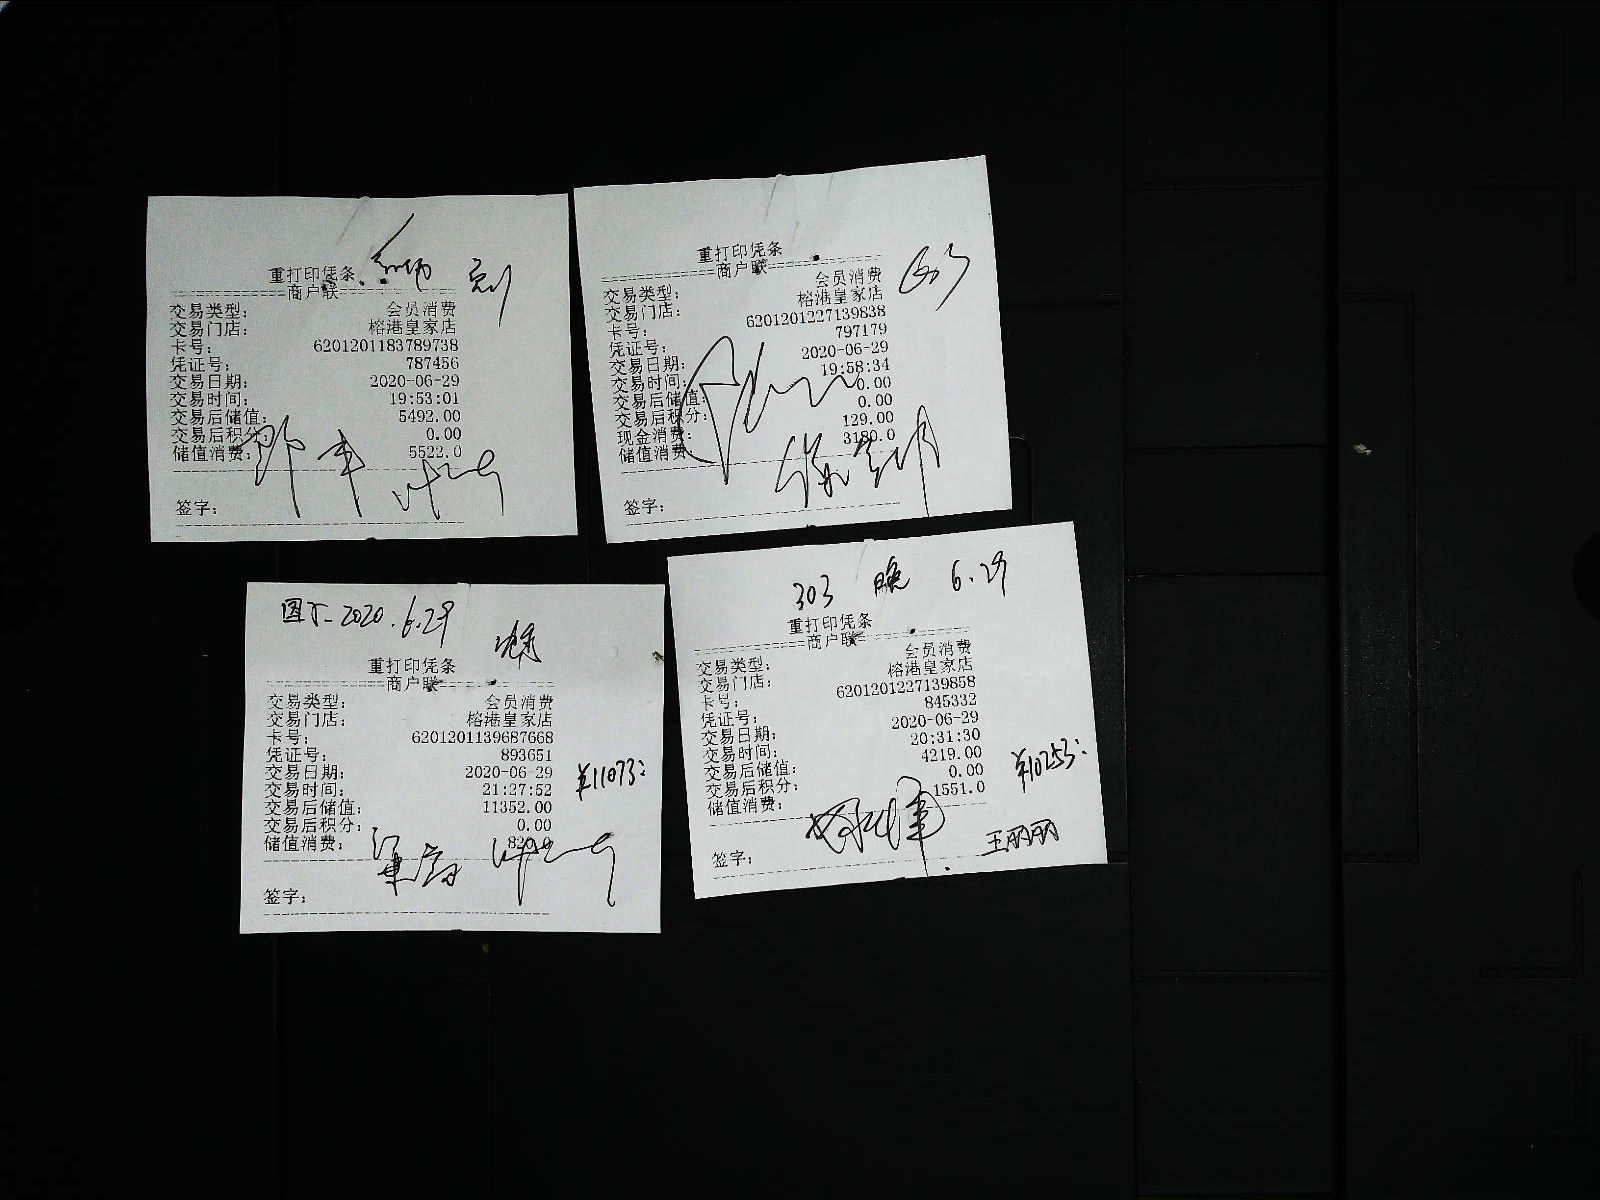 重打印凭条
商户联
交易类型： 会员消费
交易门店： 榕港皇家店
卡号： 6201201183789738
凭证号： 787456
交易日期： 2020-06-29
交易时间： 19:53:01
交易后储值： 5492.00
交易后积分 0.00
储值消费： 5522.0
签字：
重打印凭条
商户联
交易类型： 会员消费
交易门店： 榕港皇家店
卡号： 6201201227139838
凭证号： 797179
交易日期： 2020-06-29
交易时间： 19:58:34
交易后储值： 0.00
交易后积分： 0.00
现金消费： 129.00
储值消费： 3180.0
签字：
2020.6.29
重打印凭条
商户联
交易类型： 会员消费
交易门店： 榕港皇家店
卡号： 6201201139687668
凭证号： 893651
交易日期： 2020-06-29
¥11073
交易时间： 21:27:52
交易后储值： 11352.00
交易后积分： 0.00
储值消费： 820.0
签字：
303 晚 6.29
重打印凭条
商户联
交易类型： 会员消费
交易门店： 榕港皇家店
卡号： 6201201227139858
凭证号： 845332
交易日期： 2020-06-29
交易时间： 20:31:30
交易后储值： 4219.00
¥10253
交易后积分： 0.00
储值消费： 1551.0
王丽丽
签字：